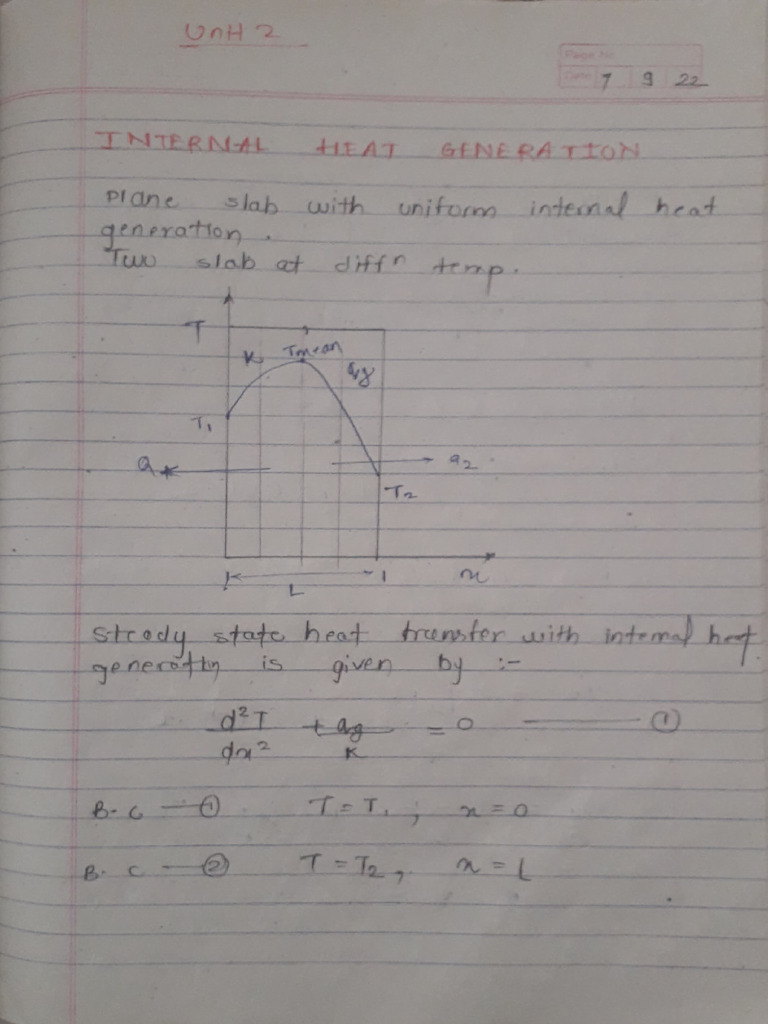 Unit 2
Page No.
Date 7 9 22
INTERNAL HEAT GENERATION
Plane slab with uniform internal heat
generation.
Two slab at diffn temp.
T
K Tmean qg
T1
Q q2
T2
L x
Steady state heat transfer with internal heat
generation is given by :-
d²T/dx² + qg/K = 0 —— ①
B.C — ① T = T1 ; x = 0
B.C — ② T = T2, x = L